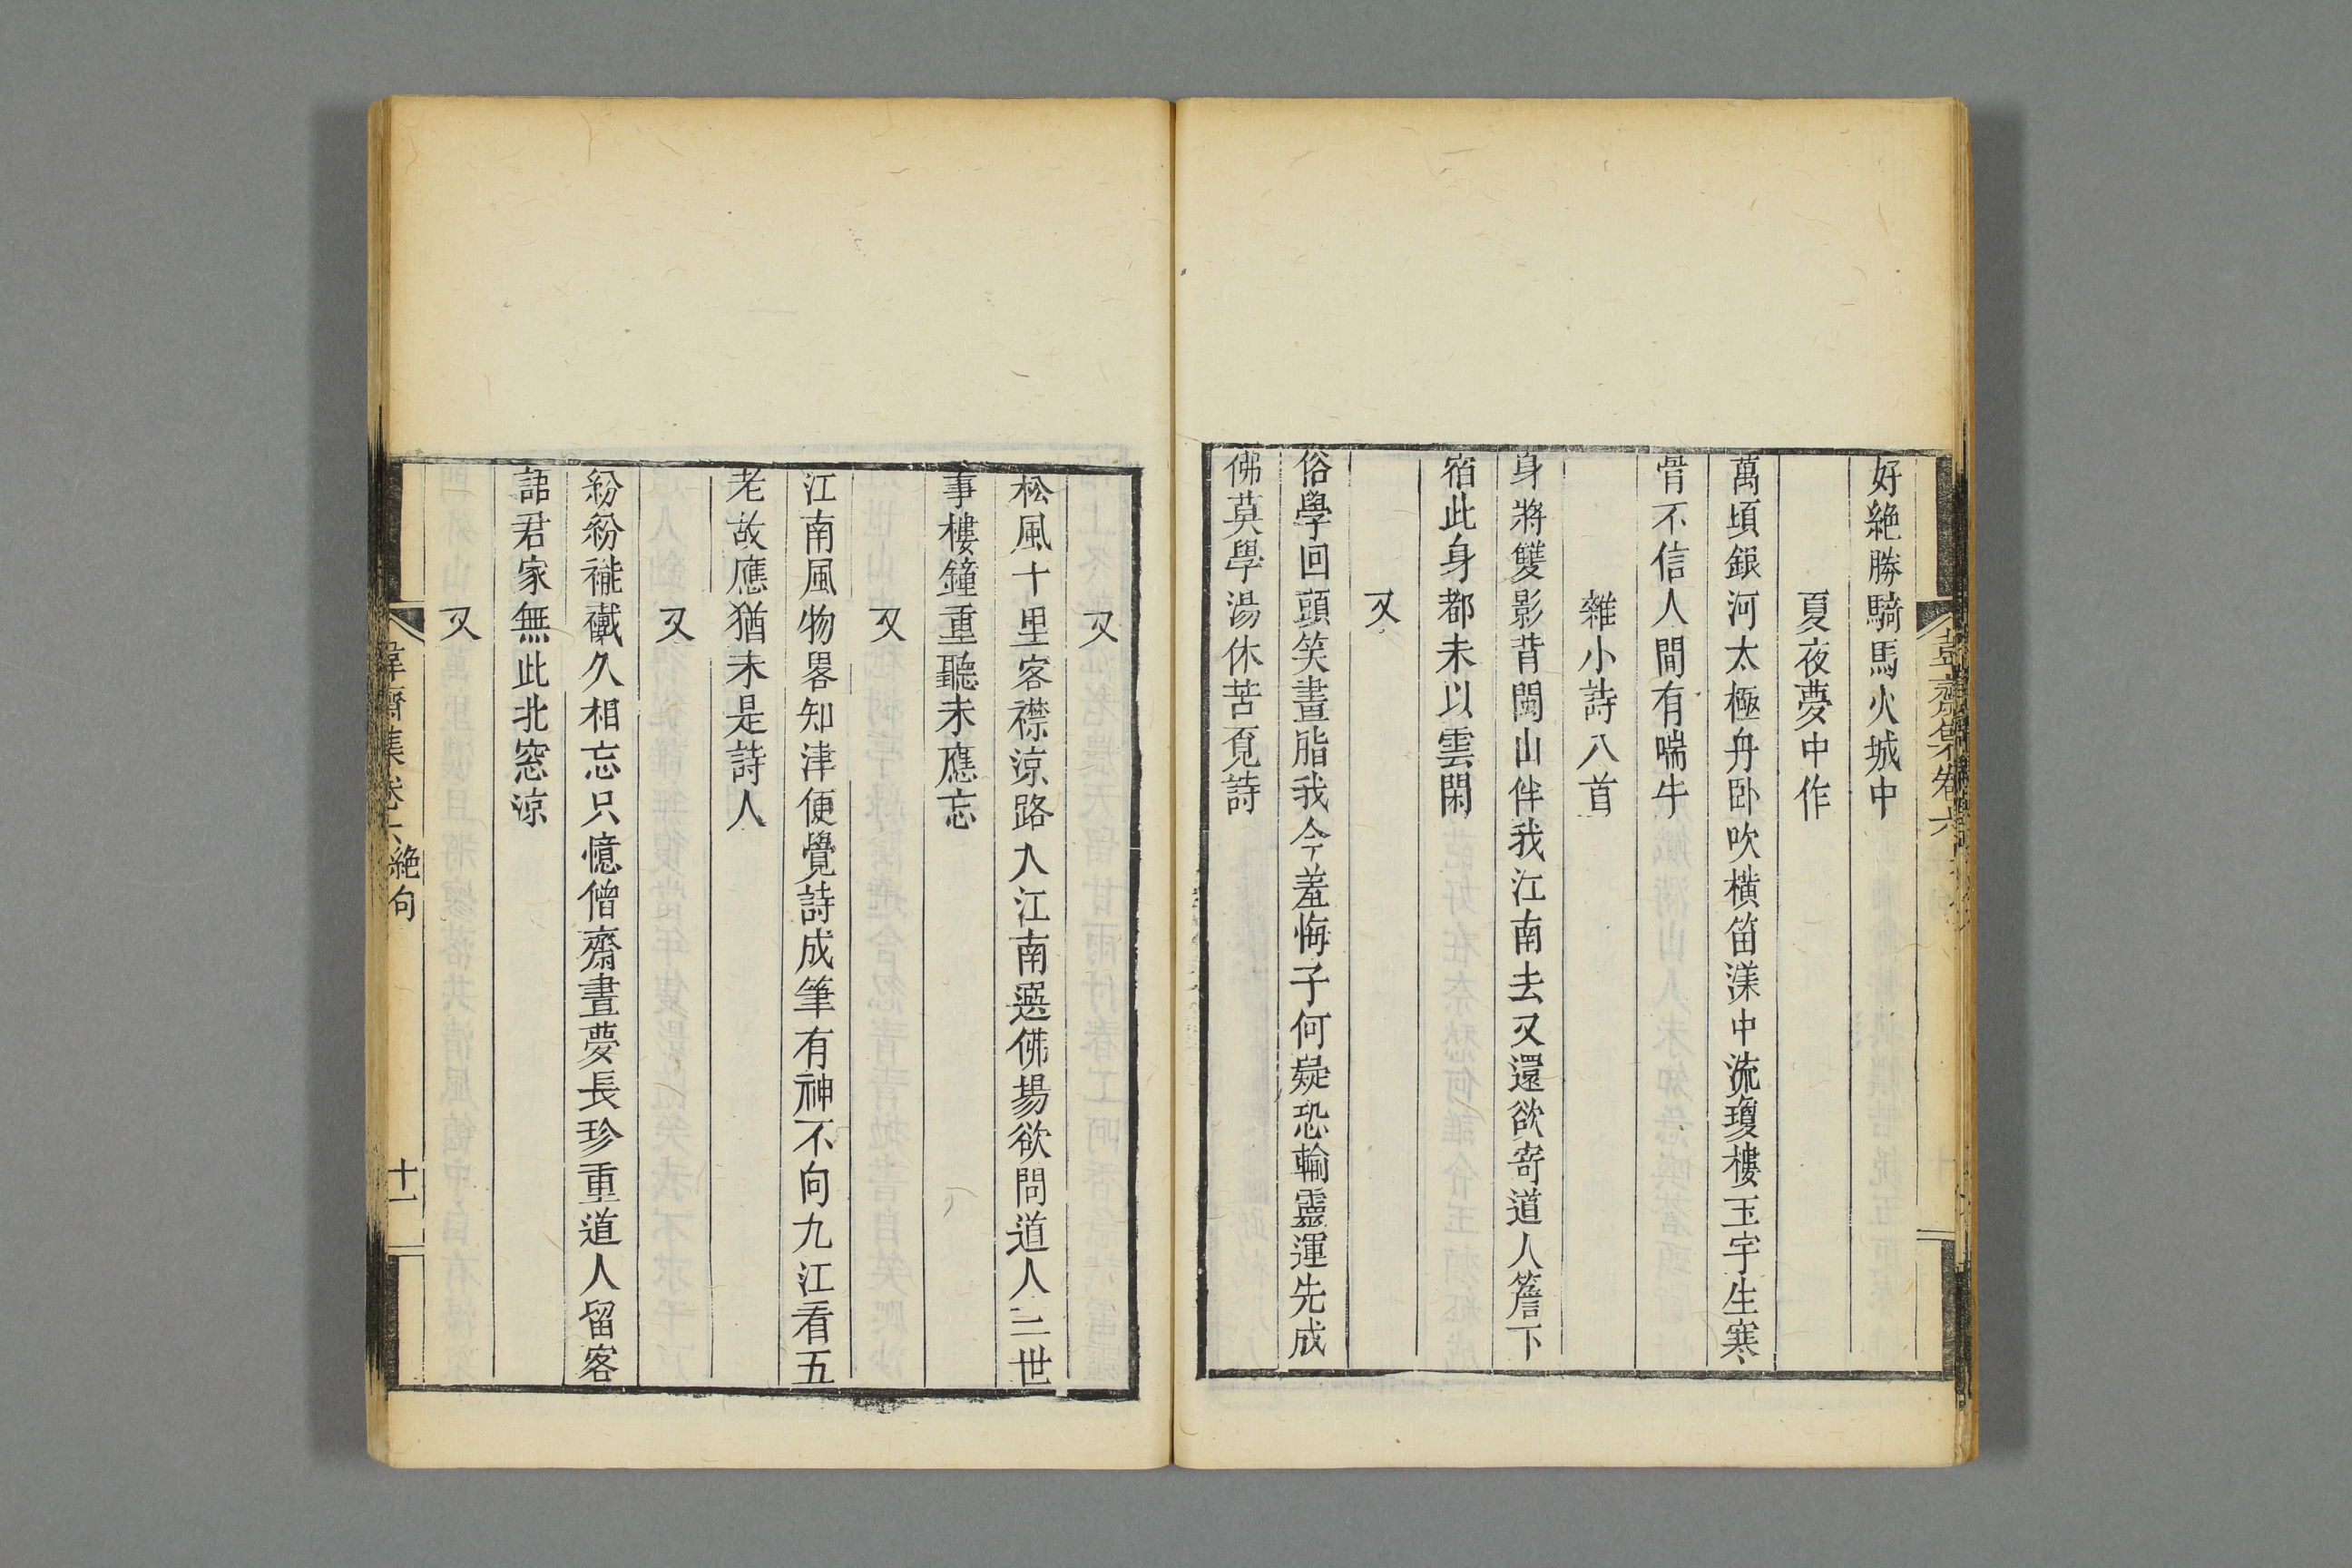 好絶勝騎馬火城中
夏夜夢中作
萬頃銀河太極舟卧吹横笛漾中流瓊樓玉宇生寒
骨不信人間有喘牛
雜小詩八首
身將雙影背閩山伴我江南去又還欲寄道人簷下
宿此身都未以雲閑
又
俗學回頭笑畫脂我今羞悔子何疑恐輸靈運先成
佛莫學湯休苦覓詩
又
松風十里客襟涼路入江南選佛場欲問道人三世
事樓鐘重聽未應忘
又
江南風物畧知津便覺詩成筆有神不向九江看五
老故應猶未是詩人
又
紛紛襹襶久相忘只憶僧齋晝夢長珍重道人留客
語君家無此北窓涼
又
韋齋集卷六 絶句 十一